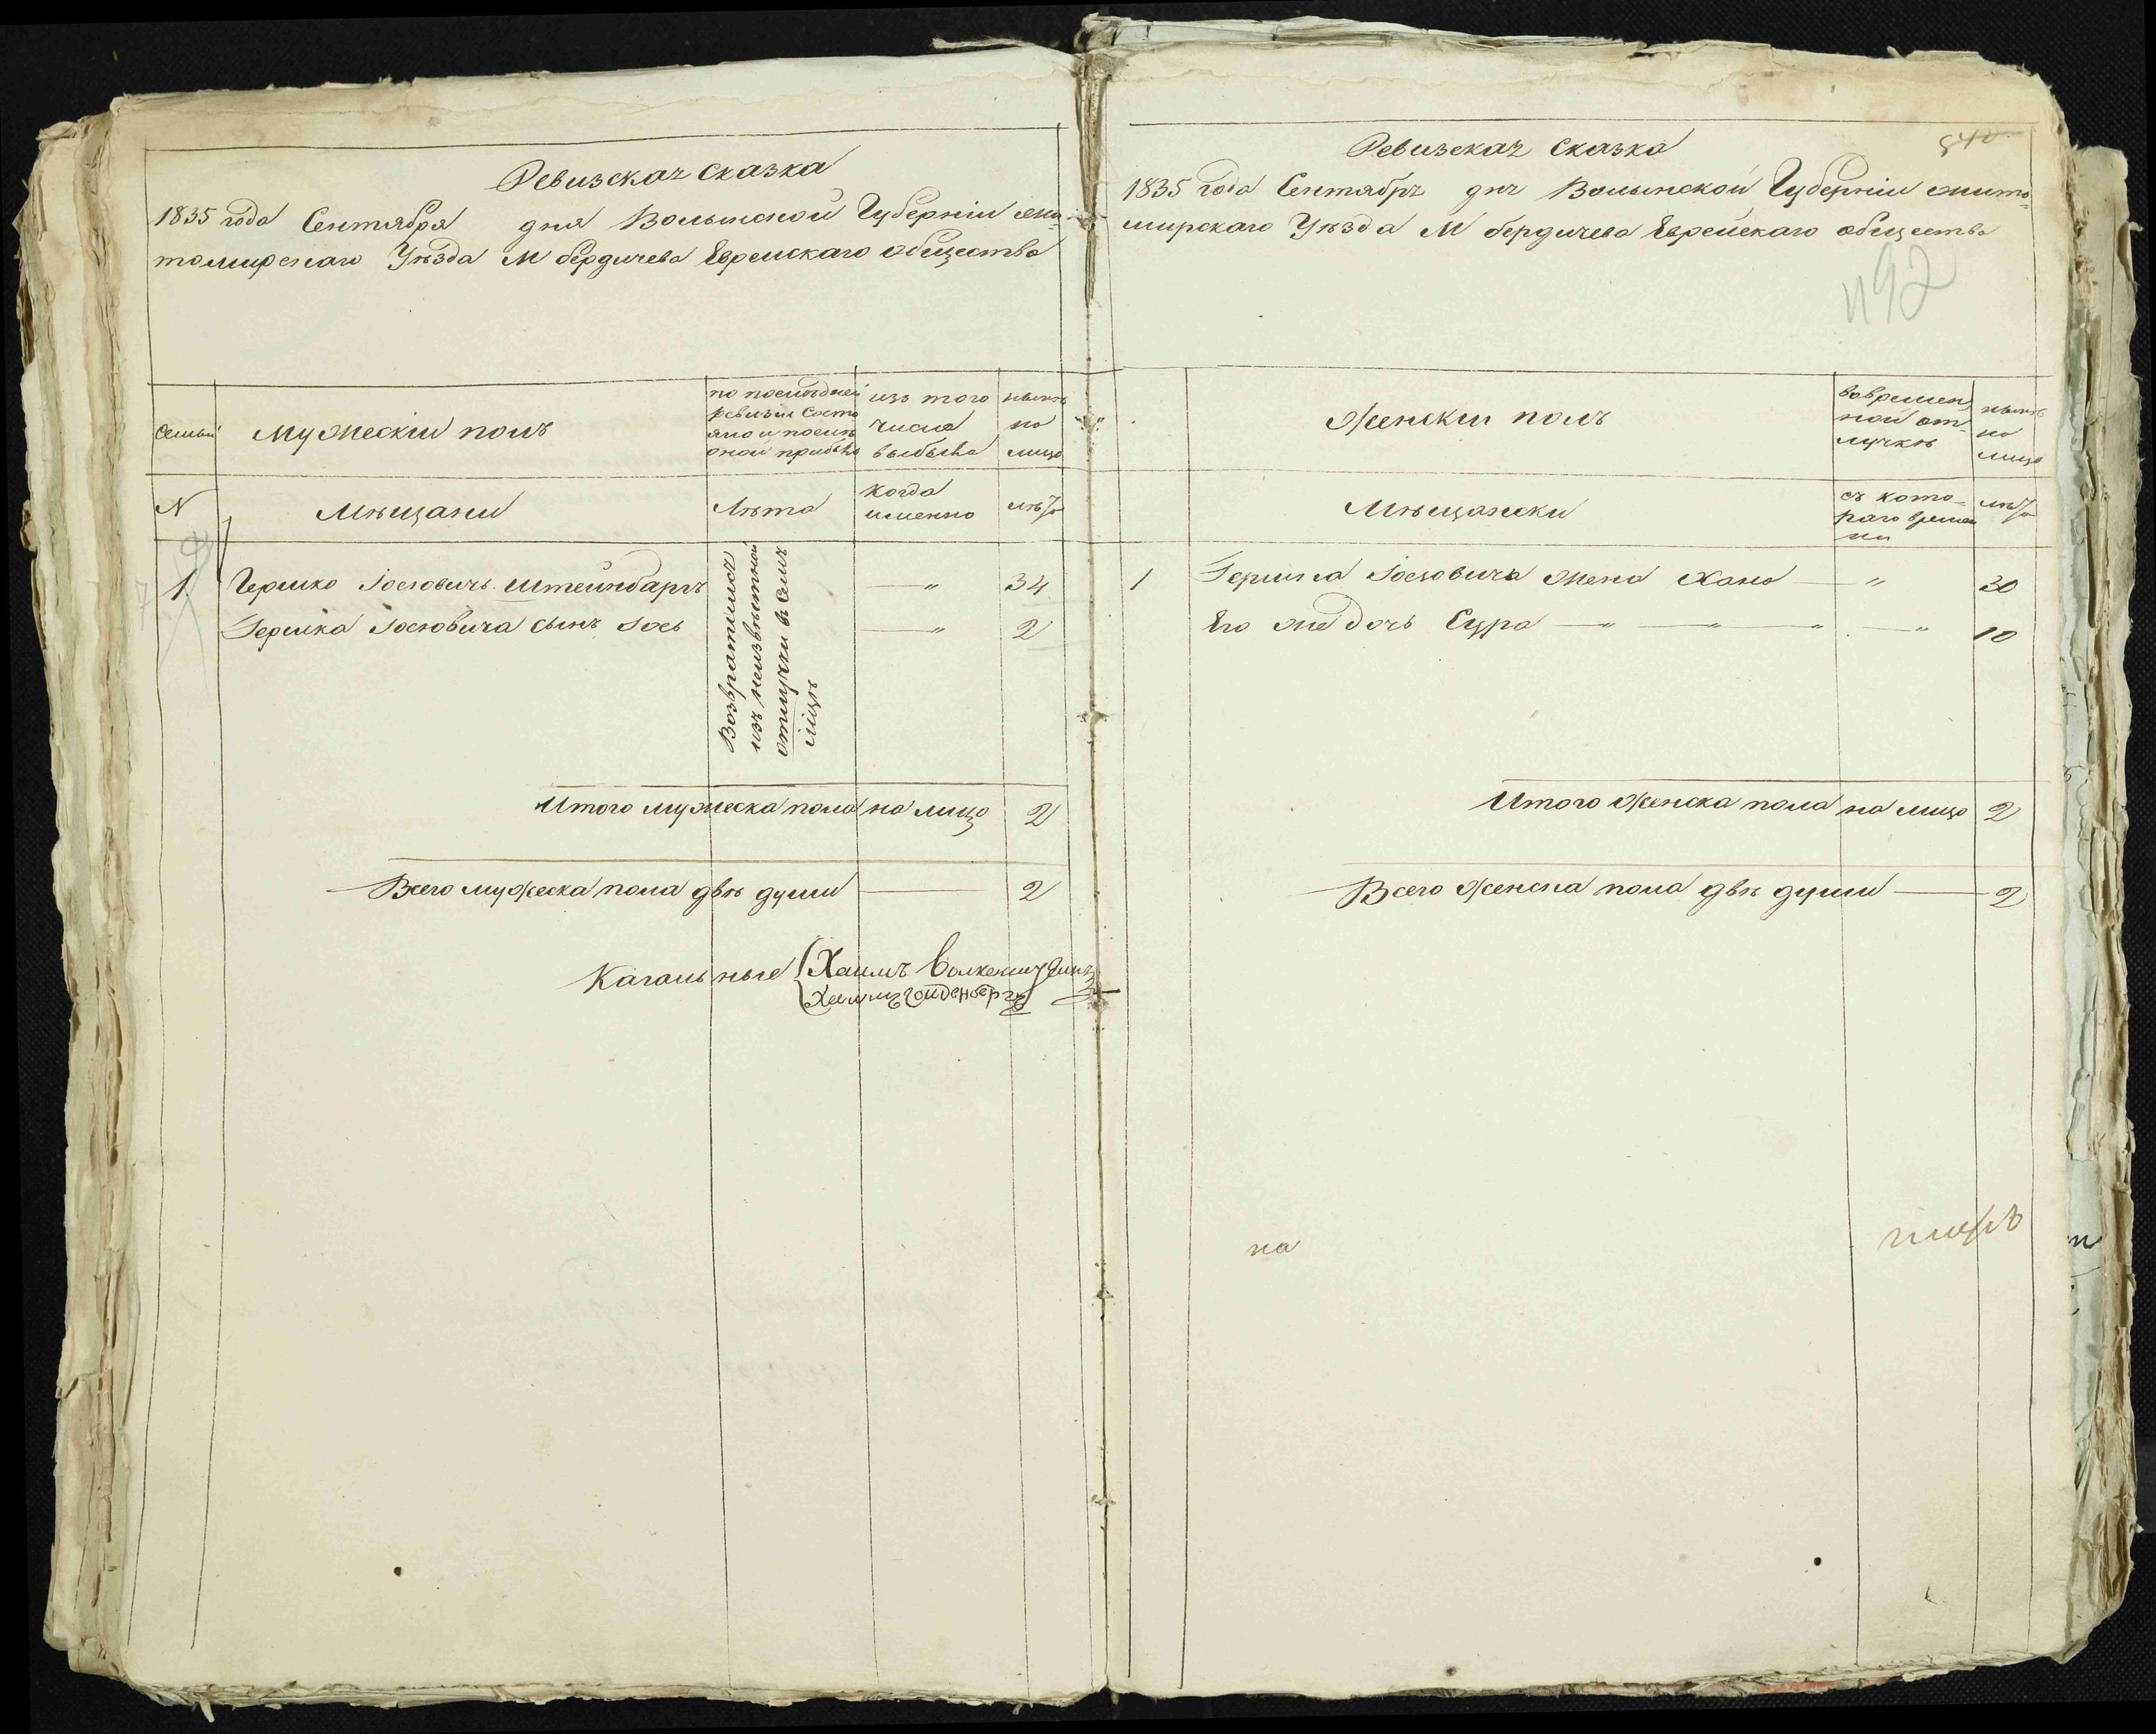 Ревизская сказка
1835 года Сентября дня Волынской Губерніи Жи-
томирскаго Уѣзда М бердичева Еврейскаго общества
семьи
Мужескій полъ
по послѣдней ревизіи состояло и послѣ оной прибыло
изъ того числа выбыло
нынѣ на лицо
N
Мѣщани
Лѣта
когда именно
лѣта
1 Гершко Іосіовичъ Штейнбаргъ — " 34
Гершка Іосіовича сынъ Іось — " 2
Возвратился
изъ неизвѣстной
отлучки въ семъ
Итого мужеска пола на лицо 2
Всего мужеска пола двѣ души — 2
Кагальные
Хаимъ
Хаимъ
Ревизская сказка
1835 года Сентября дня Волынской Губерніи Жито=
мирскаго Уѣзда М бердичева Еврейскаго общества
492
Женскій полъ
вовремен
ной от
лучкѣ
нынѣ
на
лицо
Мѣщански
съ кото-
раго време
ни
лѣта
1 Гершка Іосіовича жена Хана — " 30
Его же дочь Сура — " — " — " — " 10
Итого женска пола на лицо 2
Всего женска пола двѣ души — 2
на